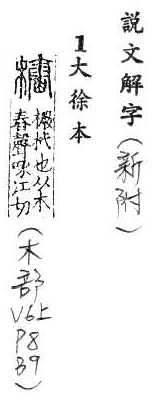 説文解字（新附）
1大徐本
樁
橛杙也从木
舂聲啄江切
（木部V6上P8B9）